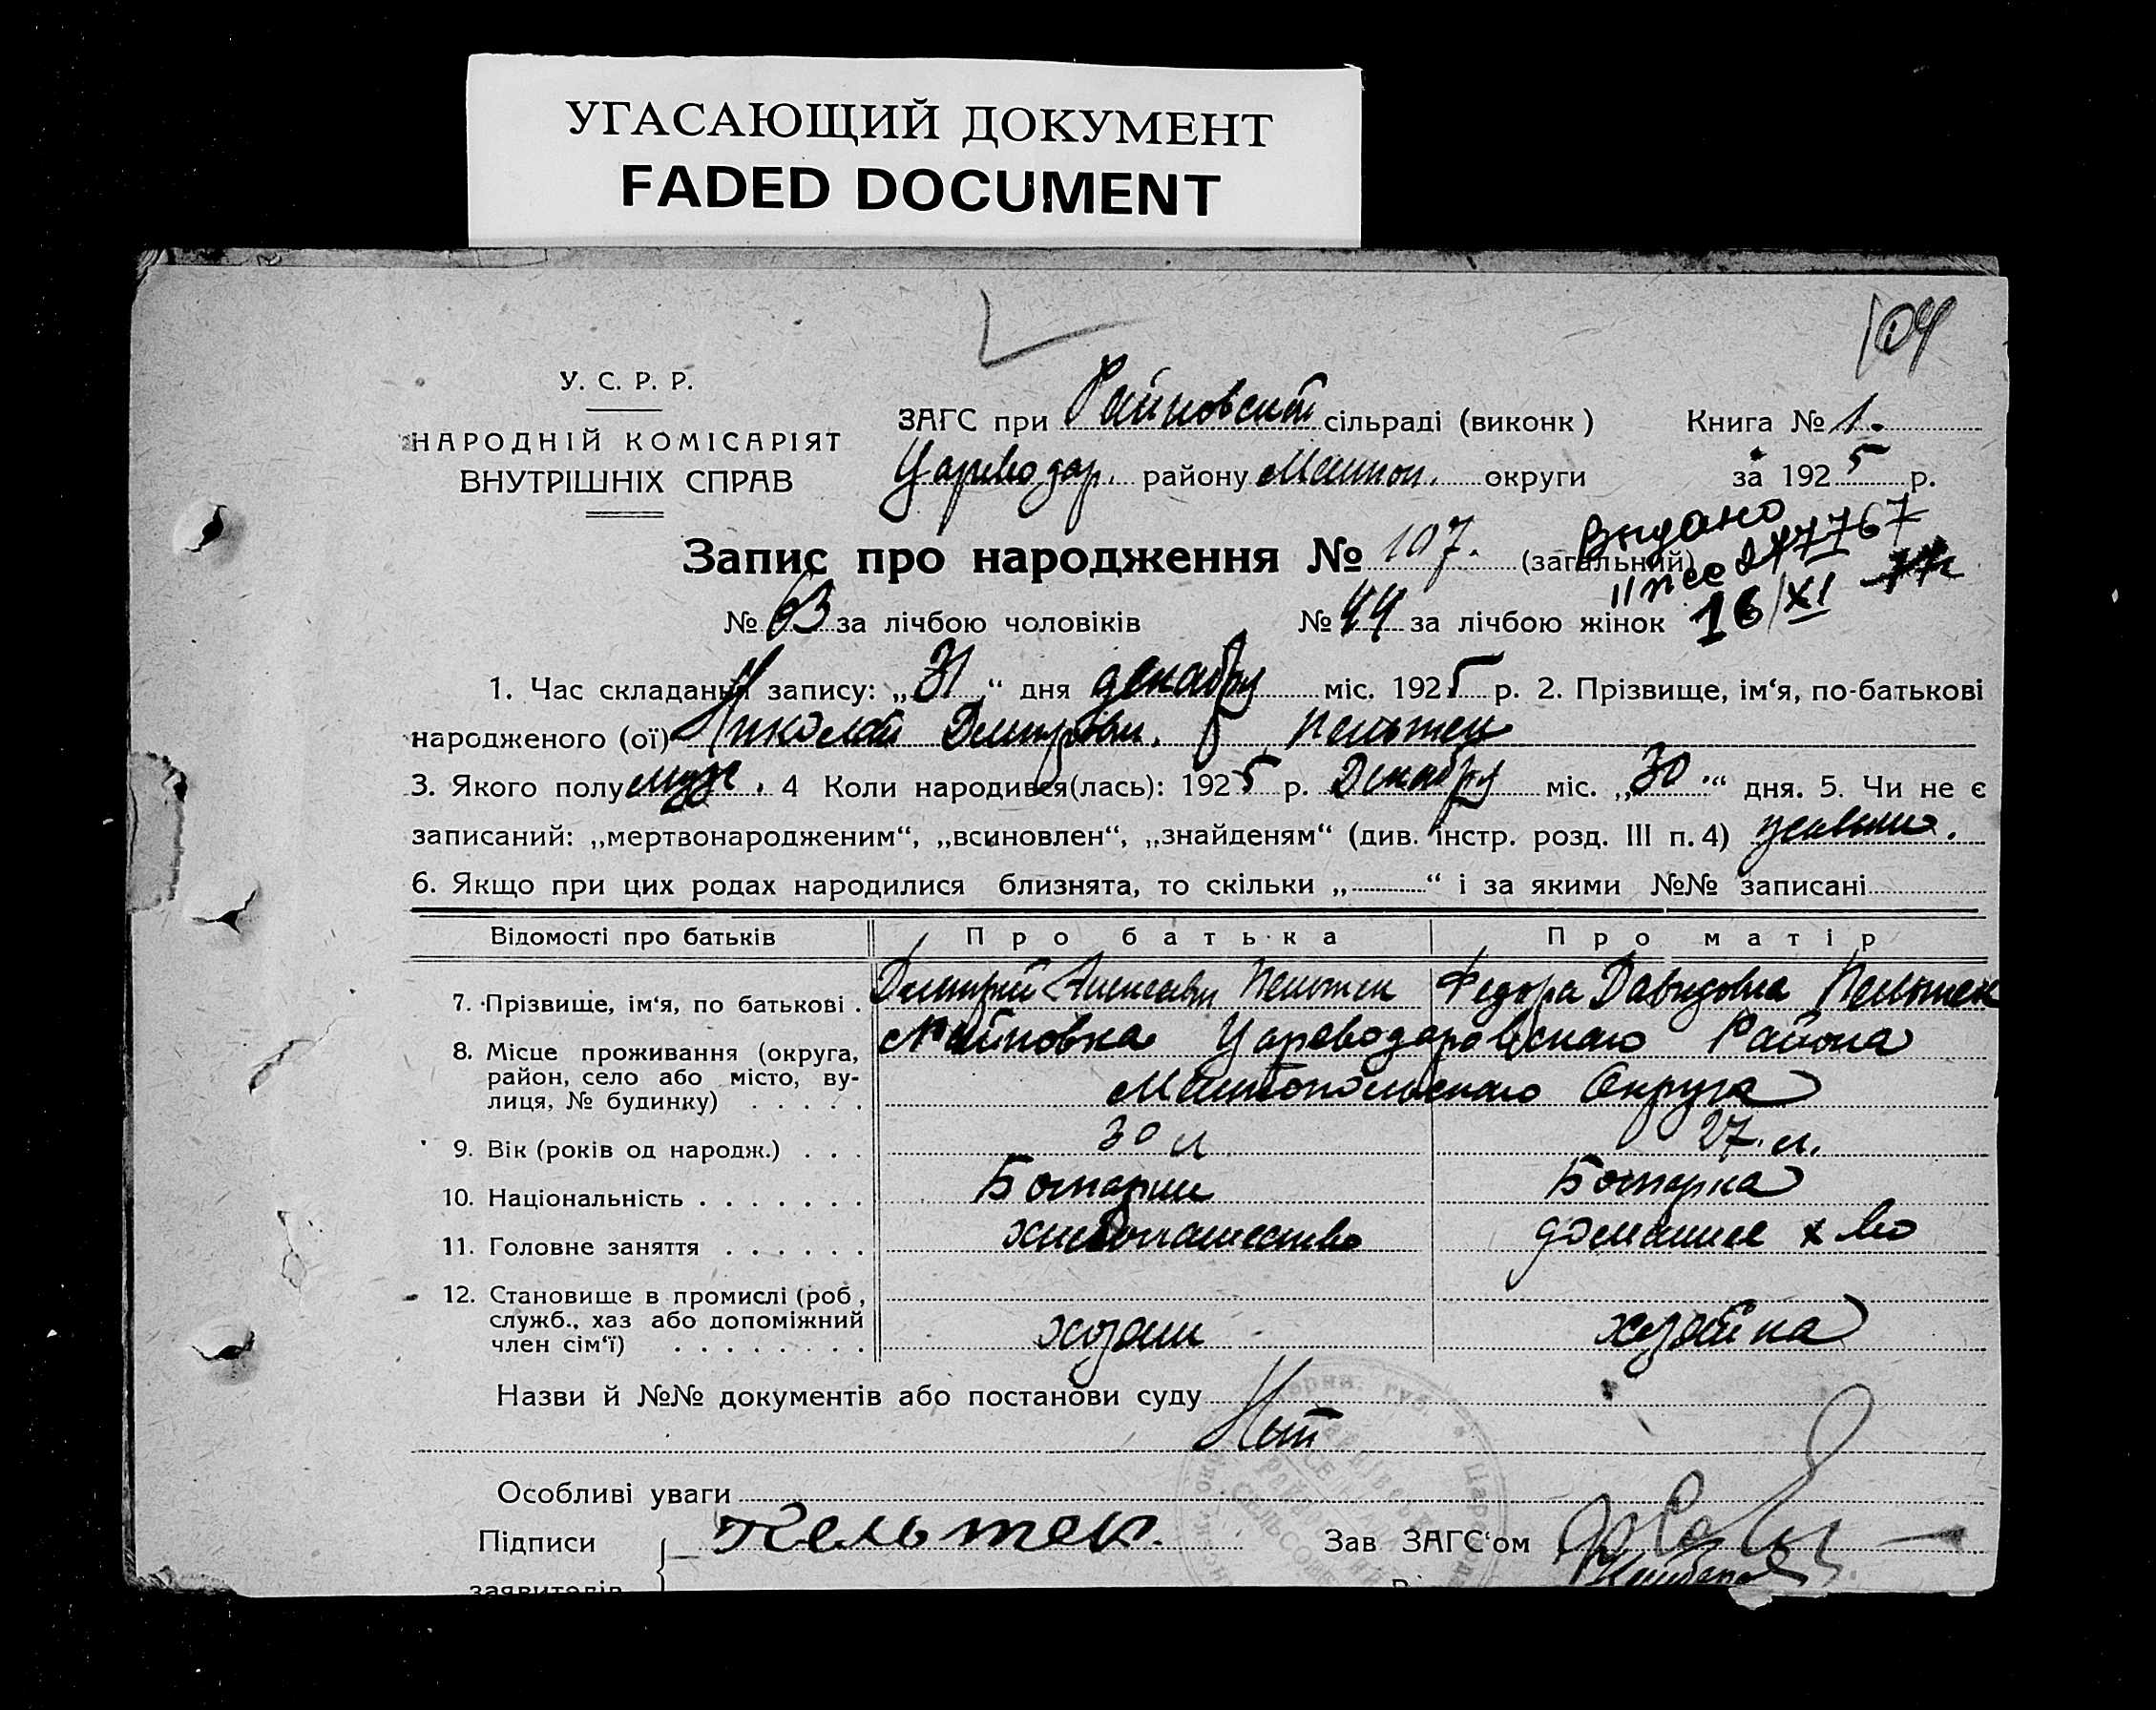 УГАСАЮЩИЙ ДОКУМЕНТ
FADED DOCUMENT
104
У. С. Р. Р.
НАРОДНІЙ КОМІСАРІЯТ
ВНУТРІШНІХ СПРАВ
ЗАГС при Райновской сільраді (виконк) Книга № 1.
Цареводар. району Мелитоп. округи за 1925 р.
Запис про народження № 107. (загальний)
Видано
247767
16/XI
№ 63 за лічбою чоловіків № 44 за лічбою жінок
1. Час складання запису: „31“ дня декабря міс. 1925 р. 2. Прізвище, ім‘я, по-батькові
народженого (ої) Николай Дмитрови. Пельтек
3. Якого полу муж. 4 Коли народився(лась): 1925 р. Декабря міс. „30“ дня. 5. Чи не є
записаний: „мертвонародженим“, „всиновлен“, „знайденям“ (див. інстр. розд. III п. 4)
6. Якщо при цих родах народилися близнята, то скільки „ “ і за якими №№ записані
Відомості про батьків Про батька Про матір
7. Прізвище, ім‘я, по батькові . Дмитрий Алексеевич Пельтек Федора Давидовна Пельтек
8. Місце проживання (округа, район, село або місто, ву-лиця, № будинку) . . . . . Райновка Цареводаровскаго Района
Мелитопольскаго Округа
9. Вік (років од народж.) . . . 30 л 27. л.
10. Національність . . . . . . . Болгарин Болгарка
11. Головне заняття . . . . . . хлебопашество домашнее х-во
12. Становище в промислі (роб,
служб., хаз або допоміжний
член сім‘ї) . . . . . . . . хозяин хозяйка
Назви й №№ документів або постанови суду
Нет
Особливі уваги
Підписи Пельтек. Зав ЗАГС‘ом
заявителів